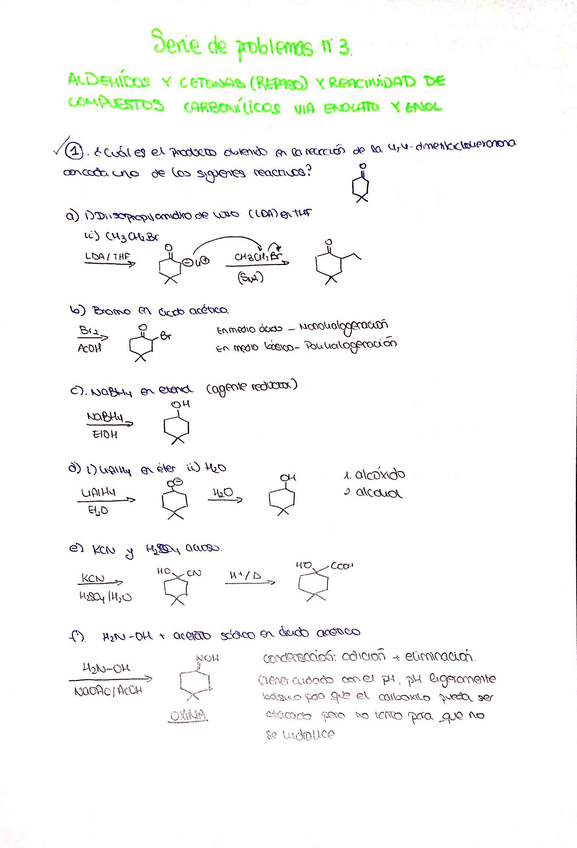 Serie de problemas nº 3.
ALDEHÍDOS Y CETONAS (REPASO) Y REACTIVIDAD DE
COMPUESTOS CARBONÍLICOS VIA ENOLATO Y ENOL
① ¿Cuál es el producto obtenido en la reacción de la 4,4-dimetilciclohexanona
con cada uno de los siguientes reactivos?
O
a) i) Diisopropilamiduro de litio (LDA) en THF
ii) CH3CH2Br
LDA/THF O ⊖ Li⊕ CH3CH2Br (SN2) O
b) Bromo en ácido acético.
Br2 AcOH O Br
En medio ácido – Monohalogenación
En medio básico – Polihalogenación
c). NaBH4 en etanol (agente reductor)
NaBH4 EtOH OH
d) i) LiAlH4 en éter ii) H2O
LiAlH4 Et2O O⊖ H2O OH
1. alcóxido
2. alcohol
e) KCN y H2SO4 acuoso.
KCN H2SO4/H2O HO CN H+/Δ HO COOH
f). H2N-OH + acetato sódico en ácido acético
H2N-OH NaOAc/AcOH NOH
OXINA
condensación: adición + eliminación.
(Tener cuidado con el pH, pH ligeramente
básico para que el carbonilo pueda ser
atacado pero no tanto para que no
se hidrolice